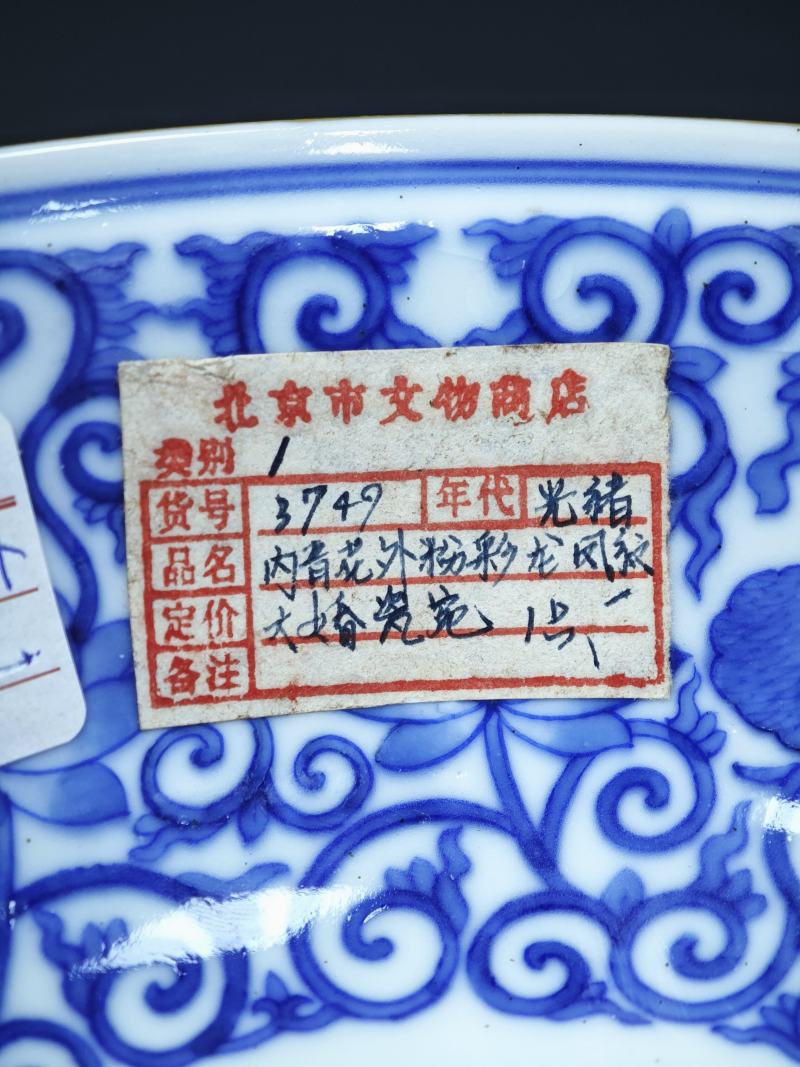 北京市文物商店
类别 1
货号 3749 年代 光绪
品名 内青花外粉彩龙凤纹
定价 大婚瓷宛 1点
备注